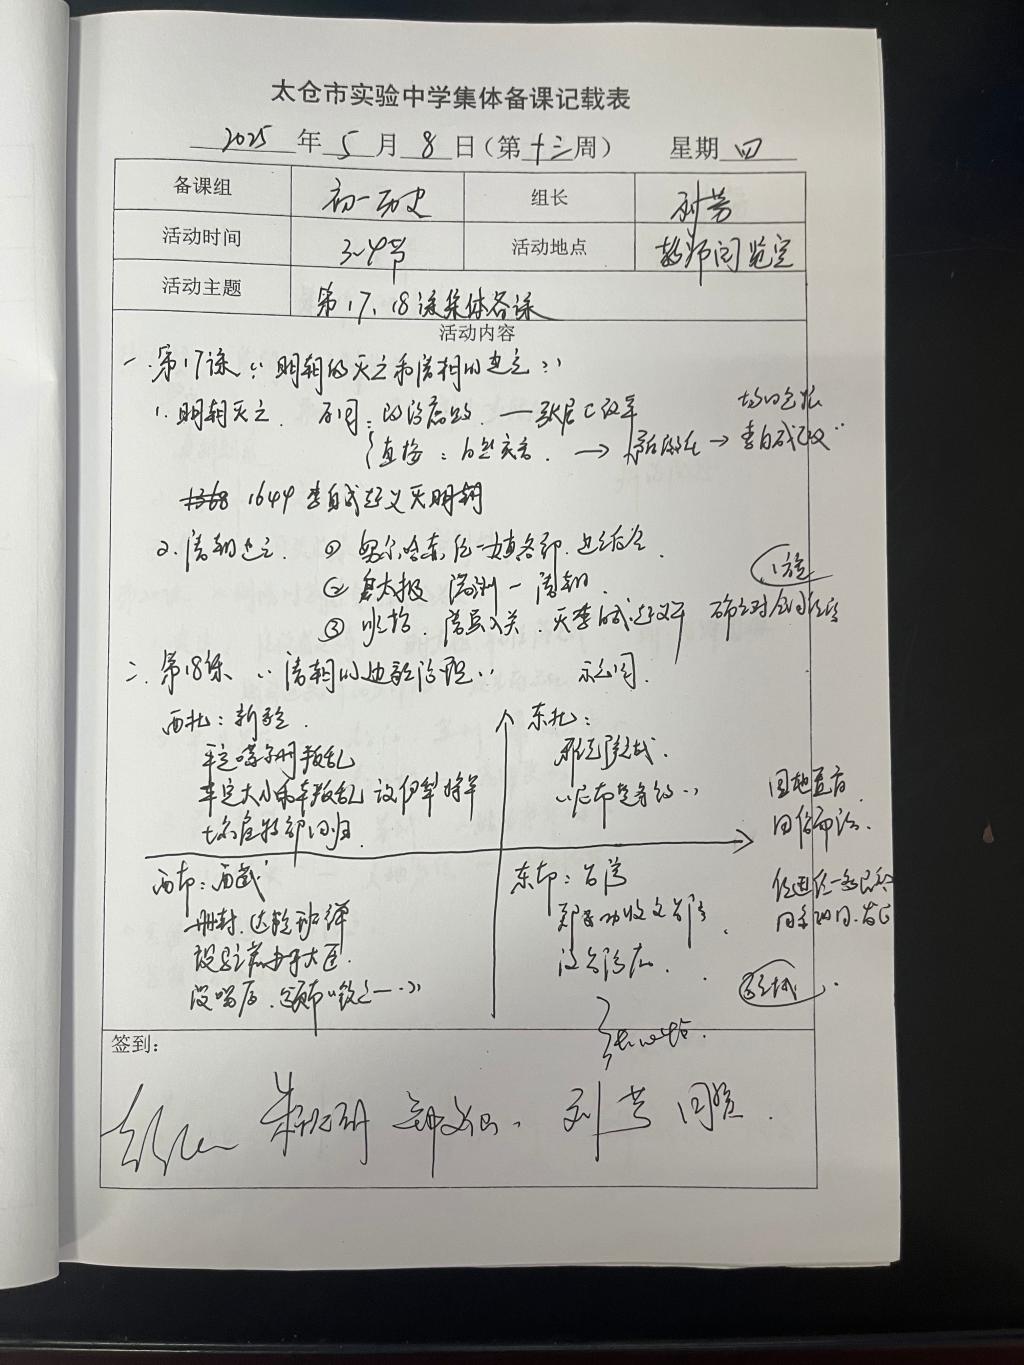 太仓市实验中学集体备课记载表
2025 年 5 月 8 日(第十三周) 星期 四
备课组 初一历史 组长 刘芳
活动时间 3-4节 活动地点 教师阅览室
活动主题 第17、18课集体备课
活动内容
一.第17课“明朝的灭亡和清朝的建立”
1.明朝灭亡. 政治腐败 — 张居正改革
直接:自然灾害. → → 李自成起义
1368 1644 李自成起义灭明朝
2.清朝建立. ① 努尔哈赤,统一女真各部.建立后金.
② 皇太极 清朝.
③ 顺治.清兵入关.灭李自成起义军 确立对全国统治
二.第18课“清朝的边疆治理” 示意图.
西北:新疆. 东北:
平定噶尔丹叛乱 雅克萨之战
平定大小和卓叛乱 设伊犁将军 “尼布楚条约” 因地置官
土尔扈特部回归. 因俗而治.
西部:西藏 东部:台湾
册封.达赖班禅 郑成功收复台湾 统一多民族
设驻藏办事大臣. 设台湾府.
签到:
刘芳